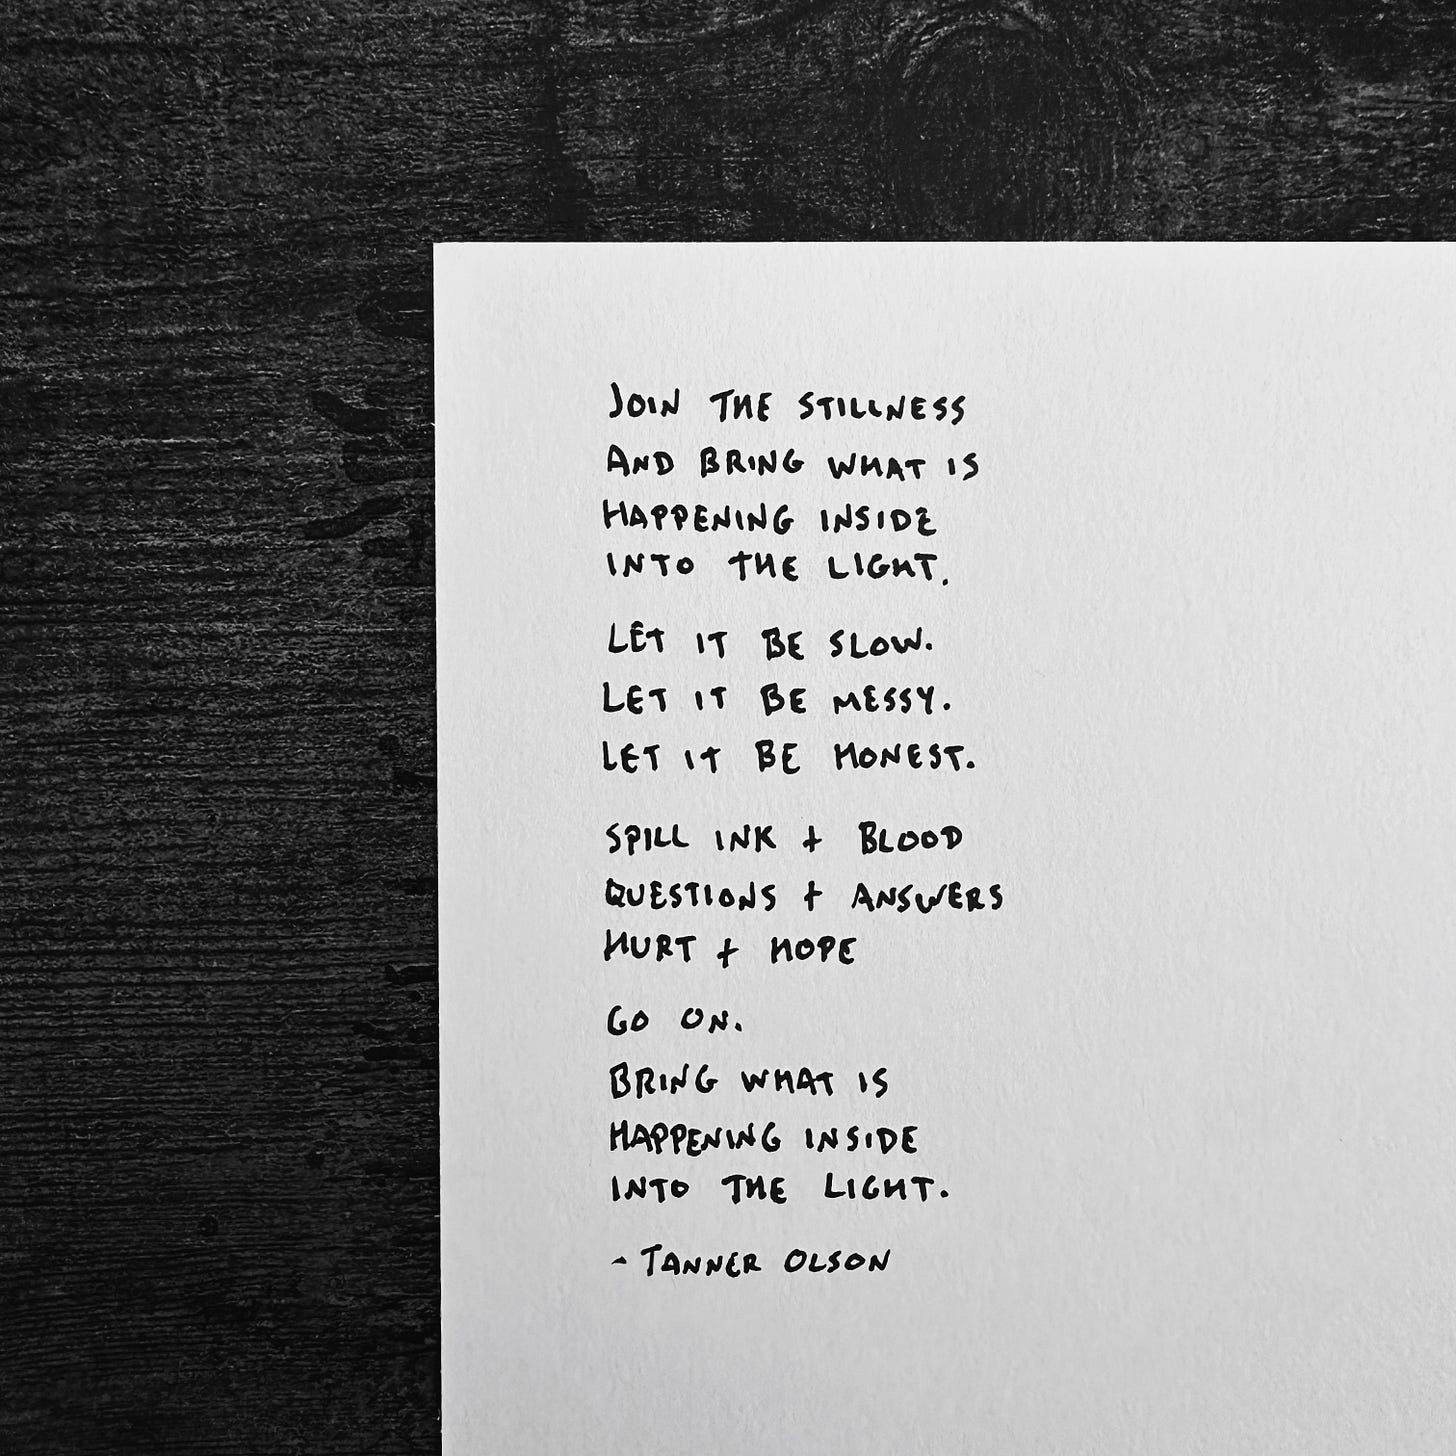 JOIN THE STILLNESS
AND BRING WHAT IS
HAPPENING INSIDE
INTO THE LIGHT.
LET IT BE SLOW.
LET IT BE MESSY.
LET IT BE HONEST.
SPILL INK + BLOOD
QUESTIONS + ANSWERS
HURT + HOPE
GO ON.
BRING WHAT IS
HAPPENING INSIDE
INTO THE LIGHT.
- TANNER OLSON